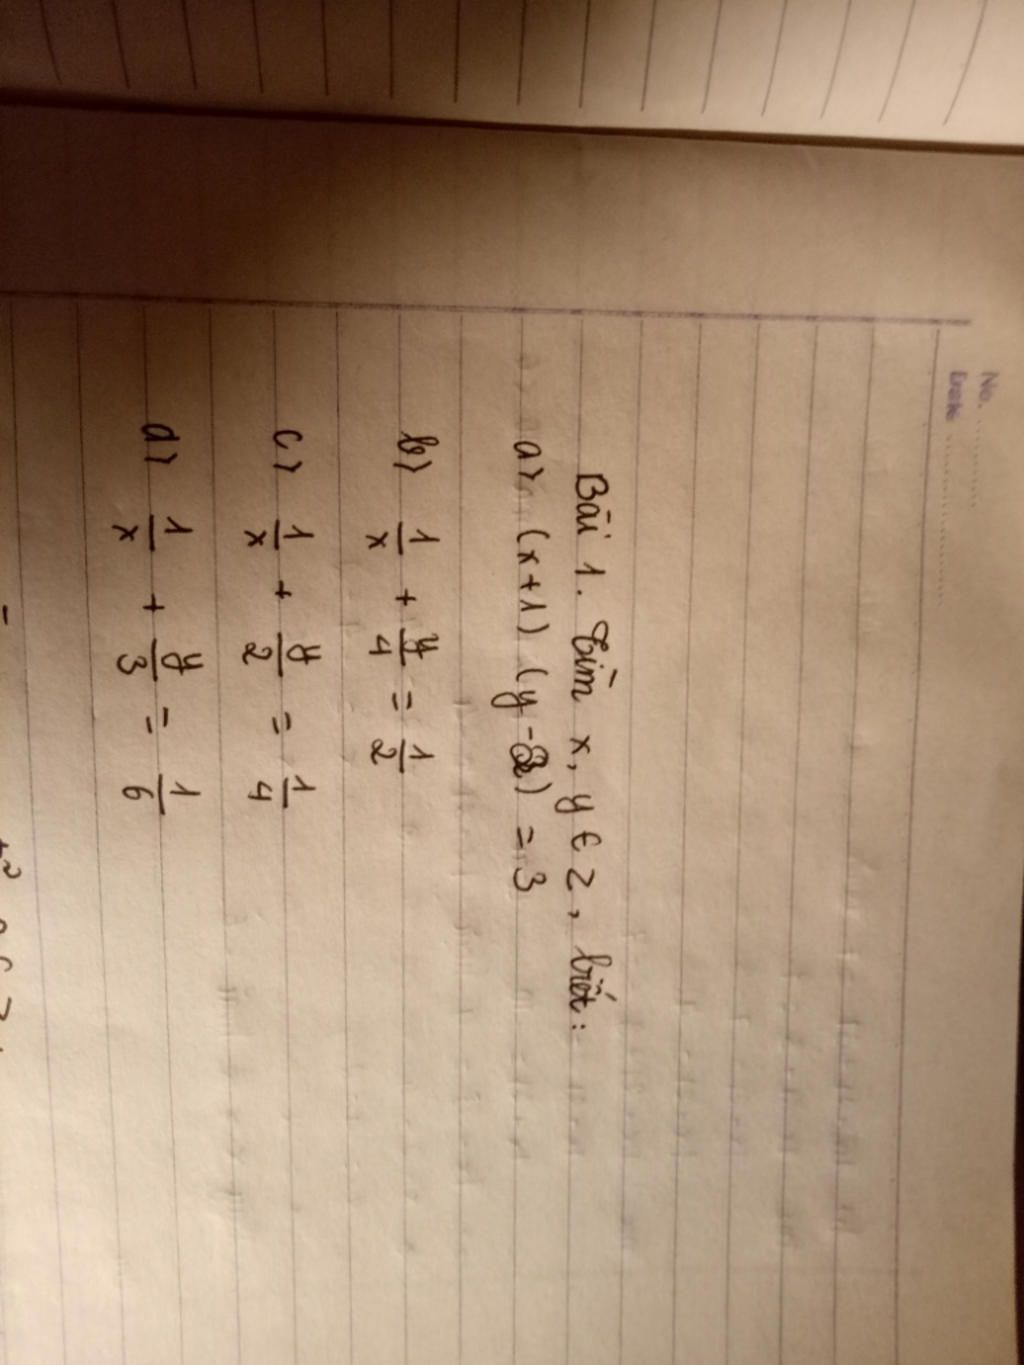 No.
Date
Bài 1. Tìm x, y ∈ Z, biết:
a) (x+1) (y-2) = 3
b) 1/x + y/4 = 1/2
c) 1/x + y/2 = 1/4
d) 1/x + y/3 = 1/6